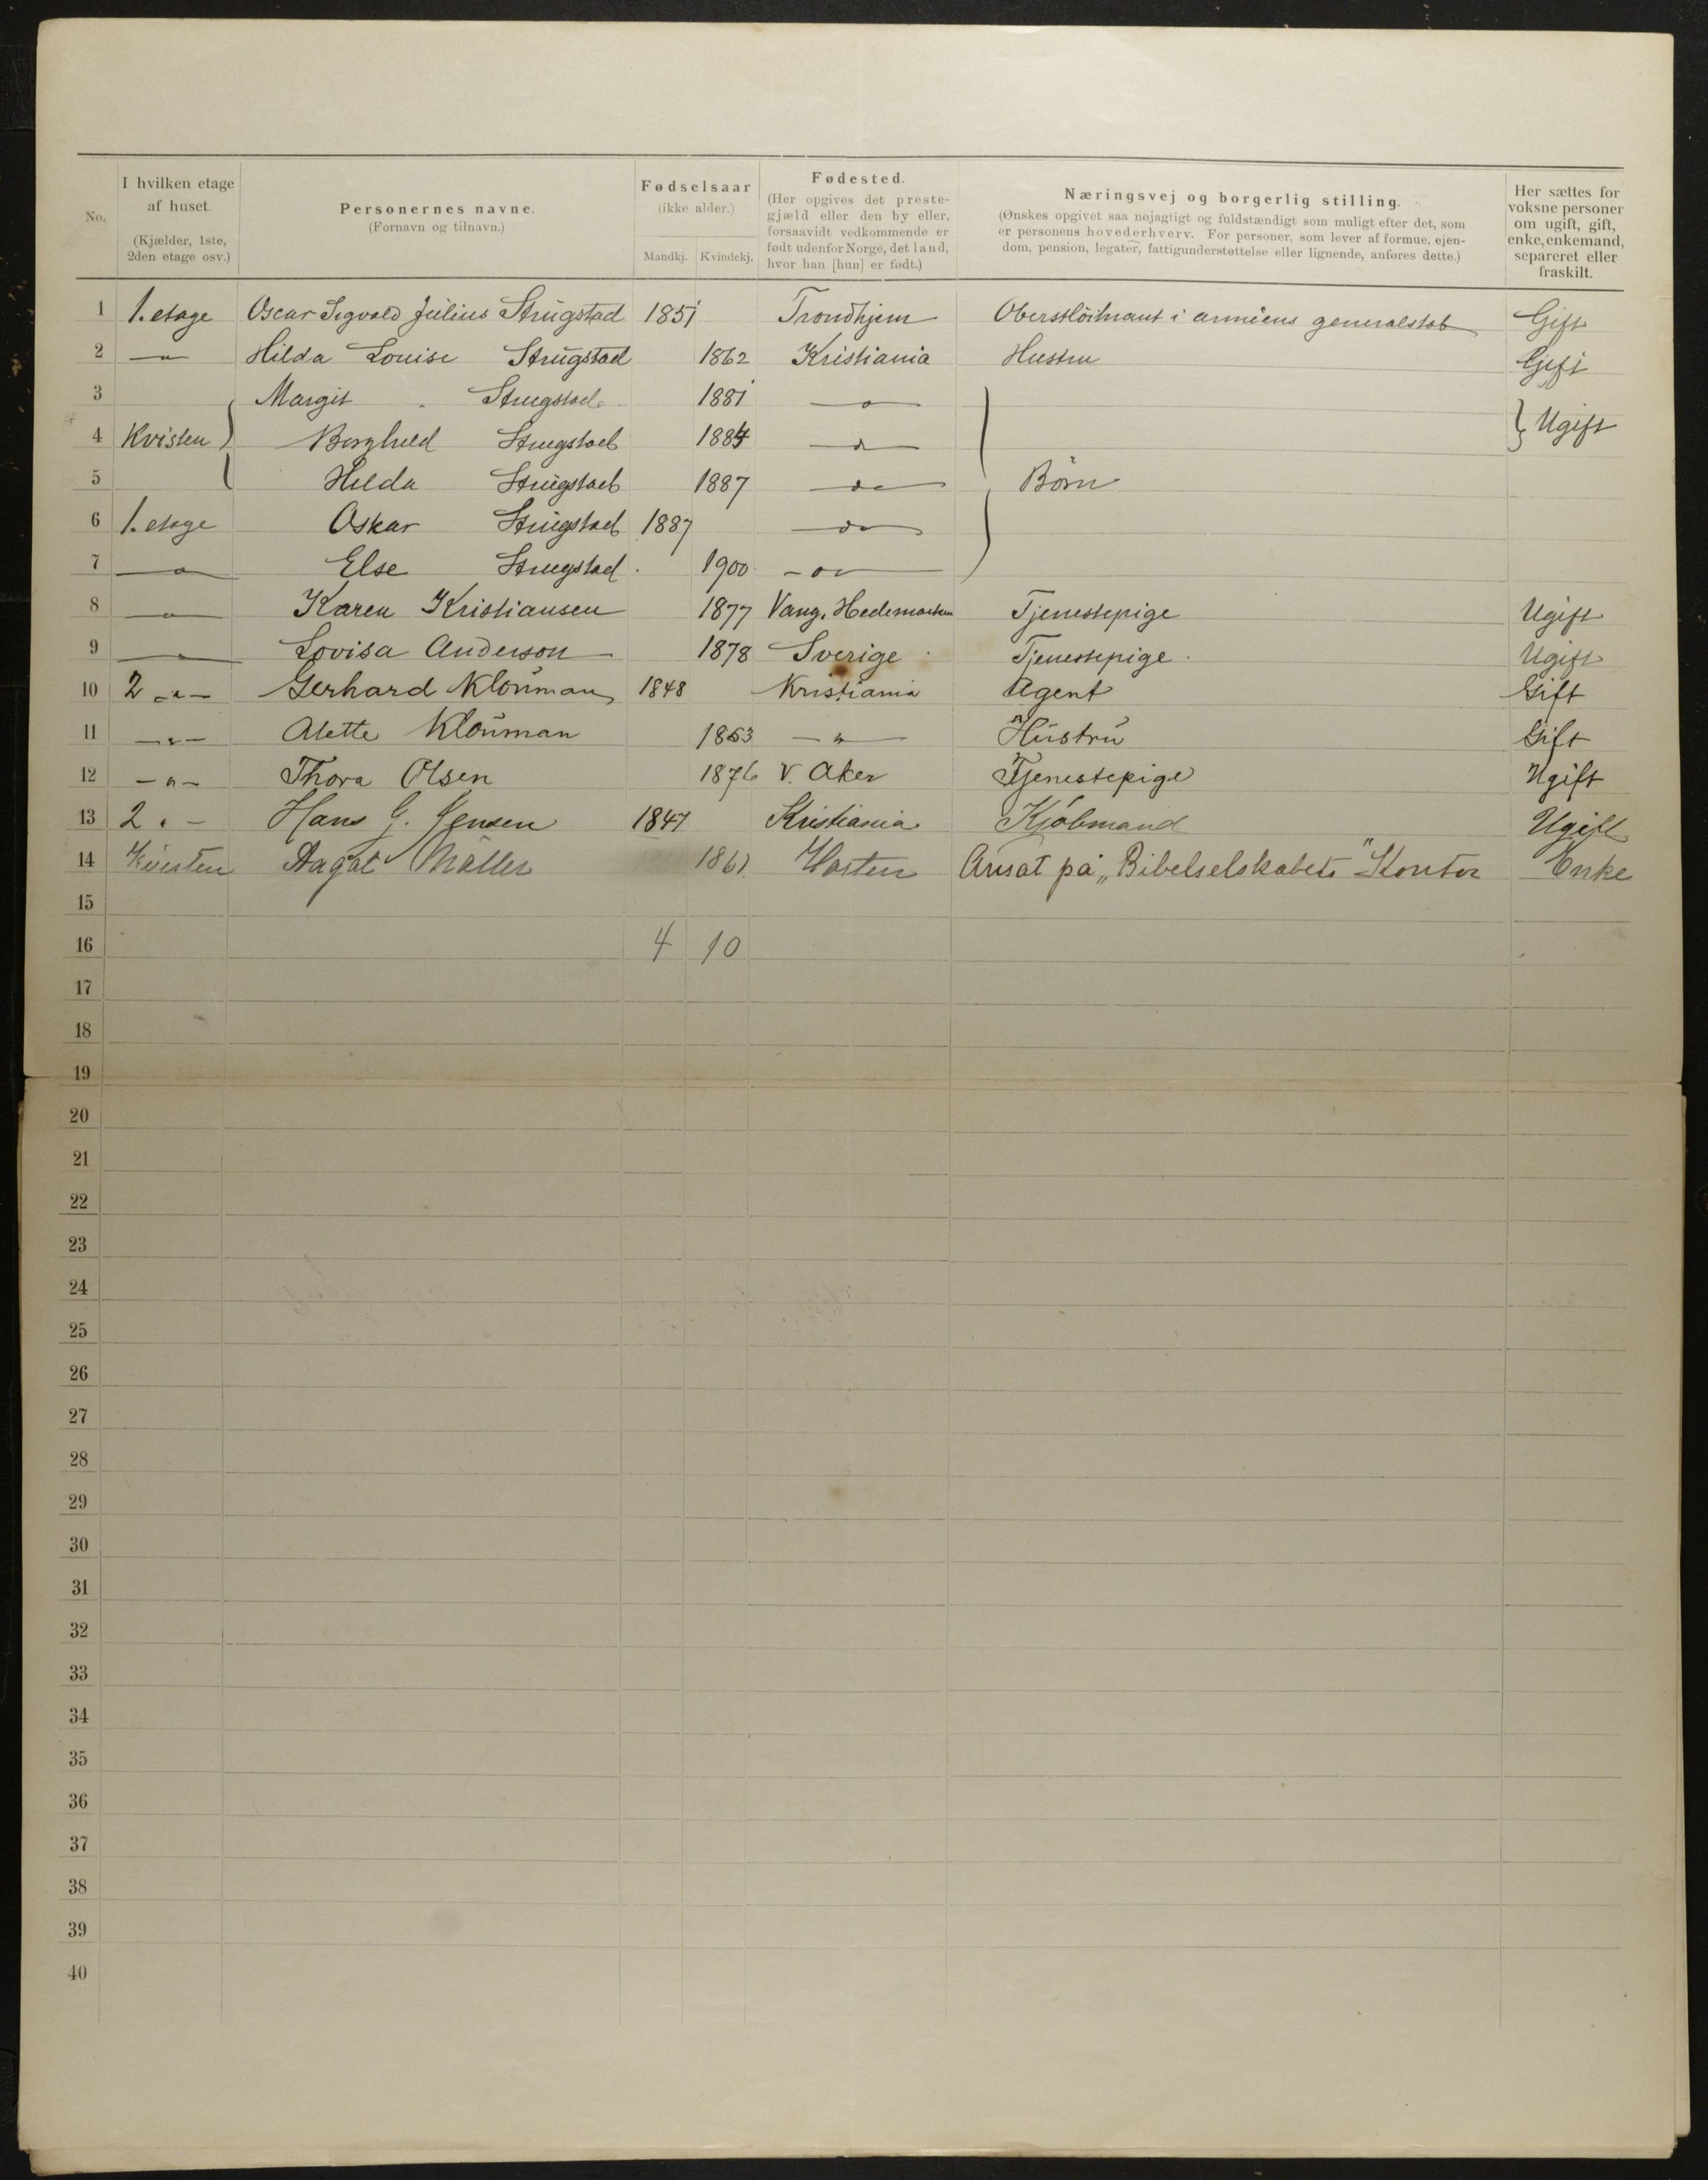 No. | I hvilken etage af huset. (Kjælder, 1ste, 2den etage osv.) | Personernes navne. (Fornavn og tilnavn.) | Fødselsaar (ikke alder.) Mandkj. | Kvindekj. | Fødested. (Her opgives det prestegjæld eller den by eller, forsaavidt vedkommende er født udenfor Norge, det land, hvor han [hun] er født.) | Næringsvej og borgerlig stilling. (Ønskes opgivet saa nøjagtigt og fuldstændigt som muligt efter det, som er personens hovederhverv. For personer, som lever af formue, ejendom, pension, legater, fattigunderstøttelse eller lignende, anføres dette.) | Her sættes for voksne personer om ugift, gift, enke, enkemand, separeret eller fraskilt.
1 1. etage Oscar Sigvald Julius Strugstad 1851 Trondhjem Oberstlöitnant i arméens generalstab Gift
2 —"— Hilda Louise Strugstad 1862 Kristiania Hustru Gift
3 Margit Strugstad 1881 —"— } Ugift
4 Kvisten } Borghild Strugstad 1884 —"—
5 Hilda Strugstad 1887 —"— Börn
6 1. etage Oskar Strugstad 1887 —"—
7 —"— Else Strugstad 1900 —"—
8 —"— Karen Kristiansen 1877 Vang, Hedemarken Tjenestepige Ugift
9 —"— Lovisa Anderson 1878 Sverige Tjenestepige Ugift
10 2 —"— Gerhard Klouman 1848 Kristiania Agent Gift
11 —"— Alette Klouman 1853 —"— Hustru Gift
12 —"— Thora Olsen 1876 V. Aker Tjenestepige Ugift
13 2 "— Hans G. Jensen 1847 Kristiania Kjöbmand Ugift
14 Kvisten Aagot Möller 1861 Horten Ansat på „Bibelselskabets" Kontor Enke
15
16 4 10
17
18
19
20
21
22
23
24
25
26
27
28
29
30
31
32
33
34
35
36
37
38
39
40